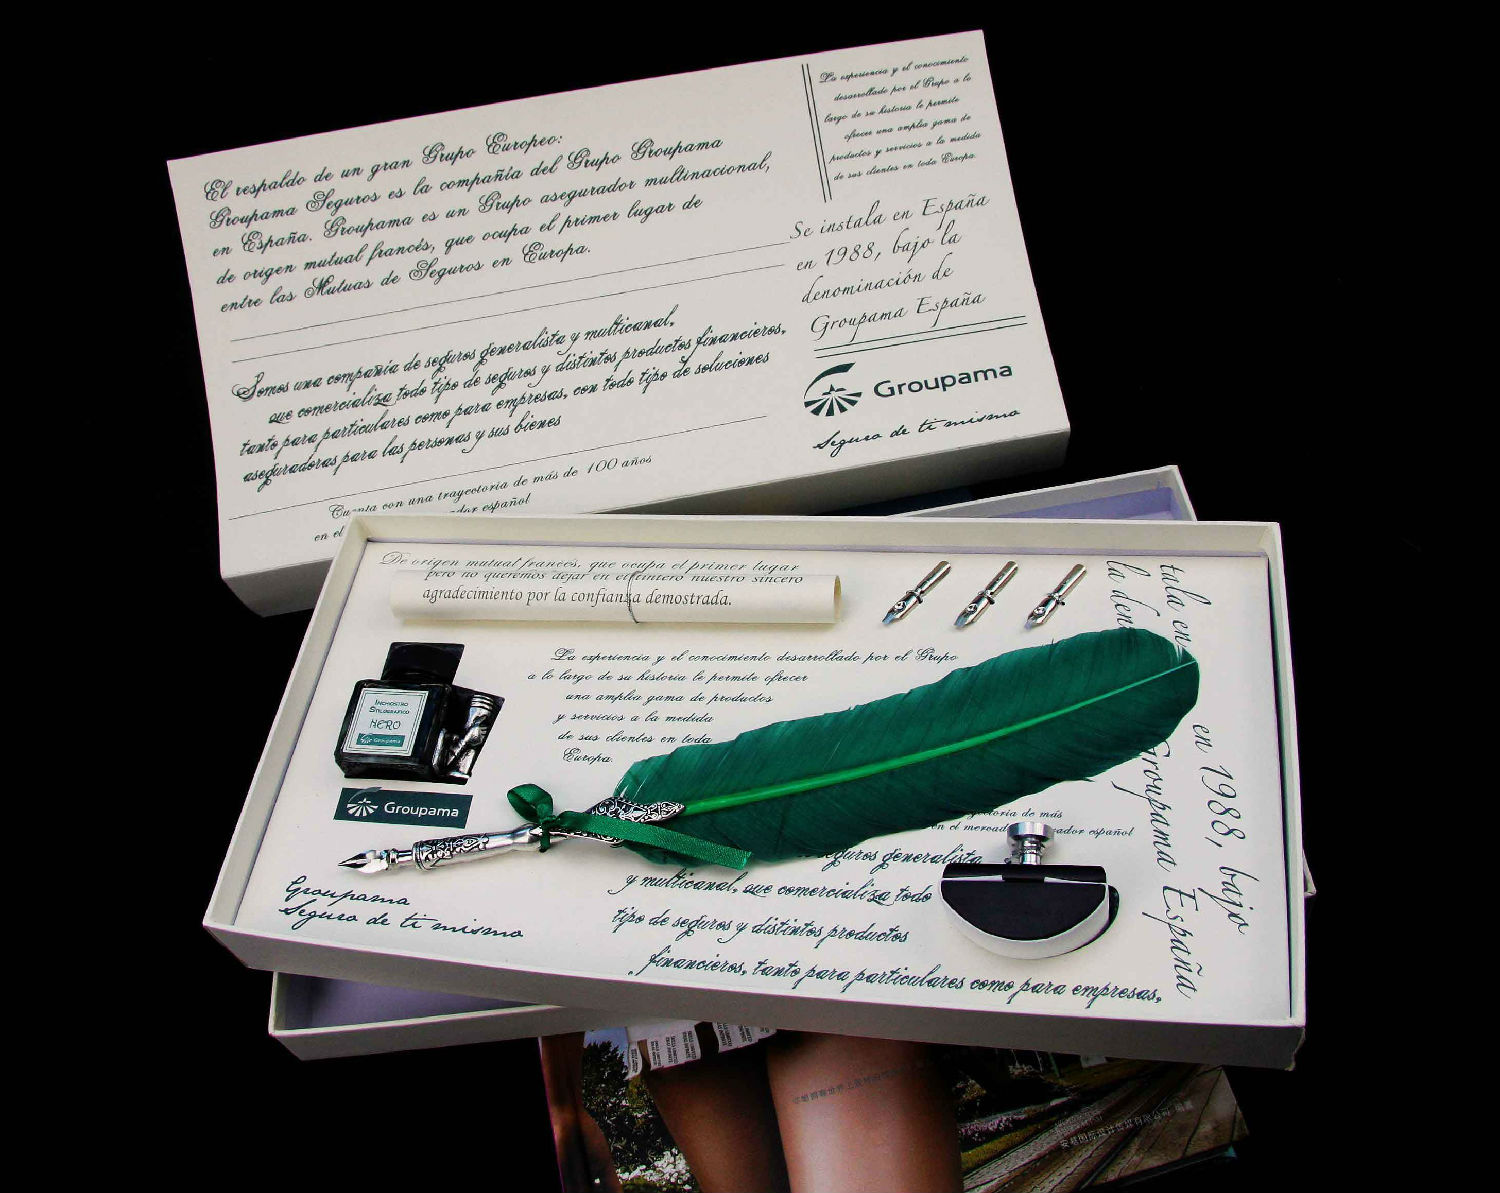 El respaldo de un gran Grupo Europeo:
Groupama Seguros es la compañía del Grupo Groupama
en España. Groupama es un Grupo asegurador multinacional,
de origen mutual francés, que ocupa el primer lugar de
entre las Mutuas de Seguros en Europa.
Somos una compañía de seguros generalista y multicanal,
que comercializa todo tipo de seguros y distintos productos financieros,
tanto para particulares como para empresas, con todo tipo de soluciones
aseguradoras para las personas y sus bienes
Cuenta con una trayectoria de más de 100 años
en el
español
La experiencia y el conocimiento
desarrollado por el Grupo a lo
largo de su historia le permite
ofrecer una amplia gama de
productos y servicios a la medida
de sus clientes en toda Europa.
Se instala en España
en 1988, bajo la
denominación de
Groupama España
Groupama
Seguro de ti mismo
De origen mutual francés, que ocupa el primer lugar
pero no queremos dejar en el tintero nuestro sincero
agradecimiento por la confianza demostrada.
La experiencia y el conocimiento desarrollado por el Grupo
a lo largo de su historia le permite ofrecer
una amplia gama de productos
y servicios a la medida
de sus clientes en toda
Europa.
INCHIOSTRO
STILOGRAFICO
NERO
Groupama
Groupama
Groupama
Seguro de ti mismo
más
en el español
seguros generalista
y multicanal, que comercializa todo
tipo de seguros y distintos productos
financieros, tanto para particulares como para empresas,
tala en
en 1988, bajo
la den
Groupama España